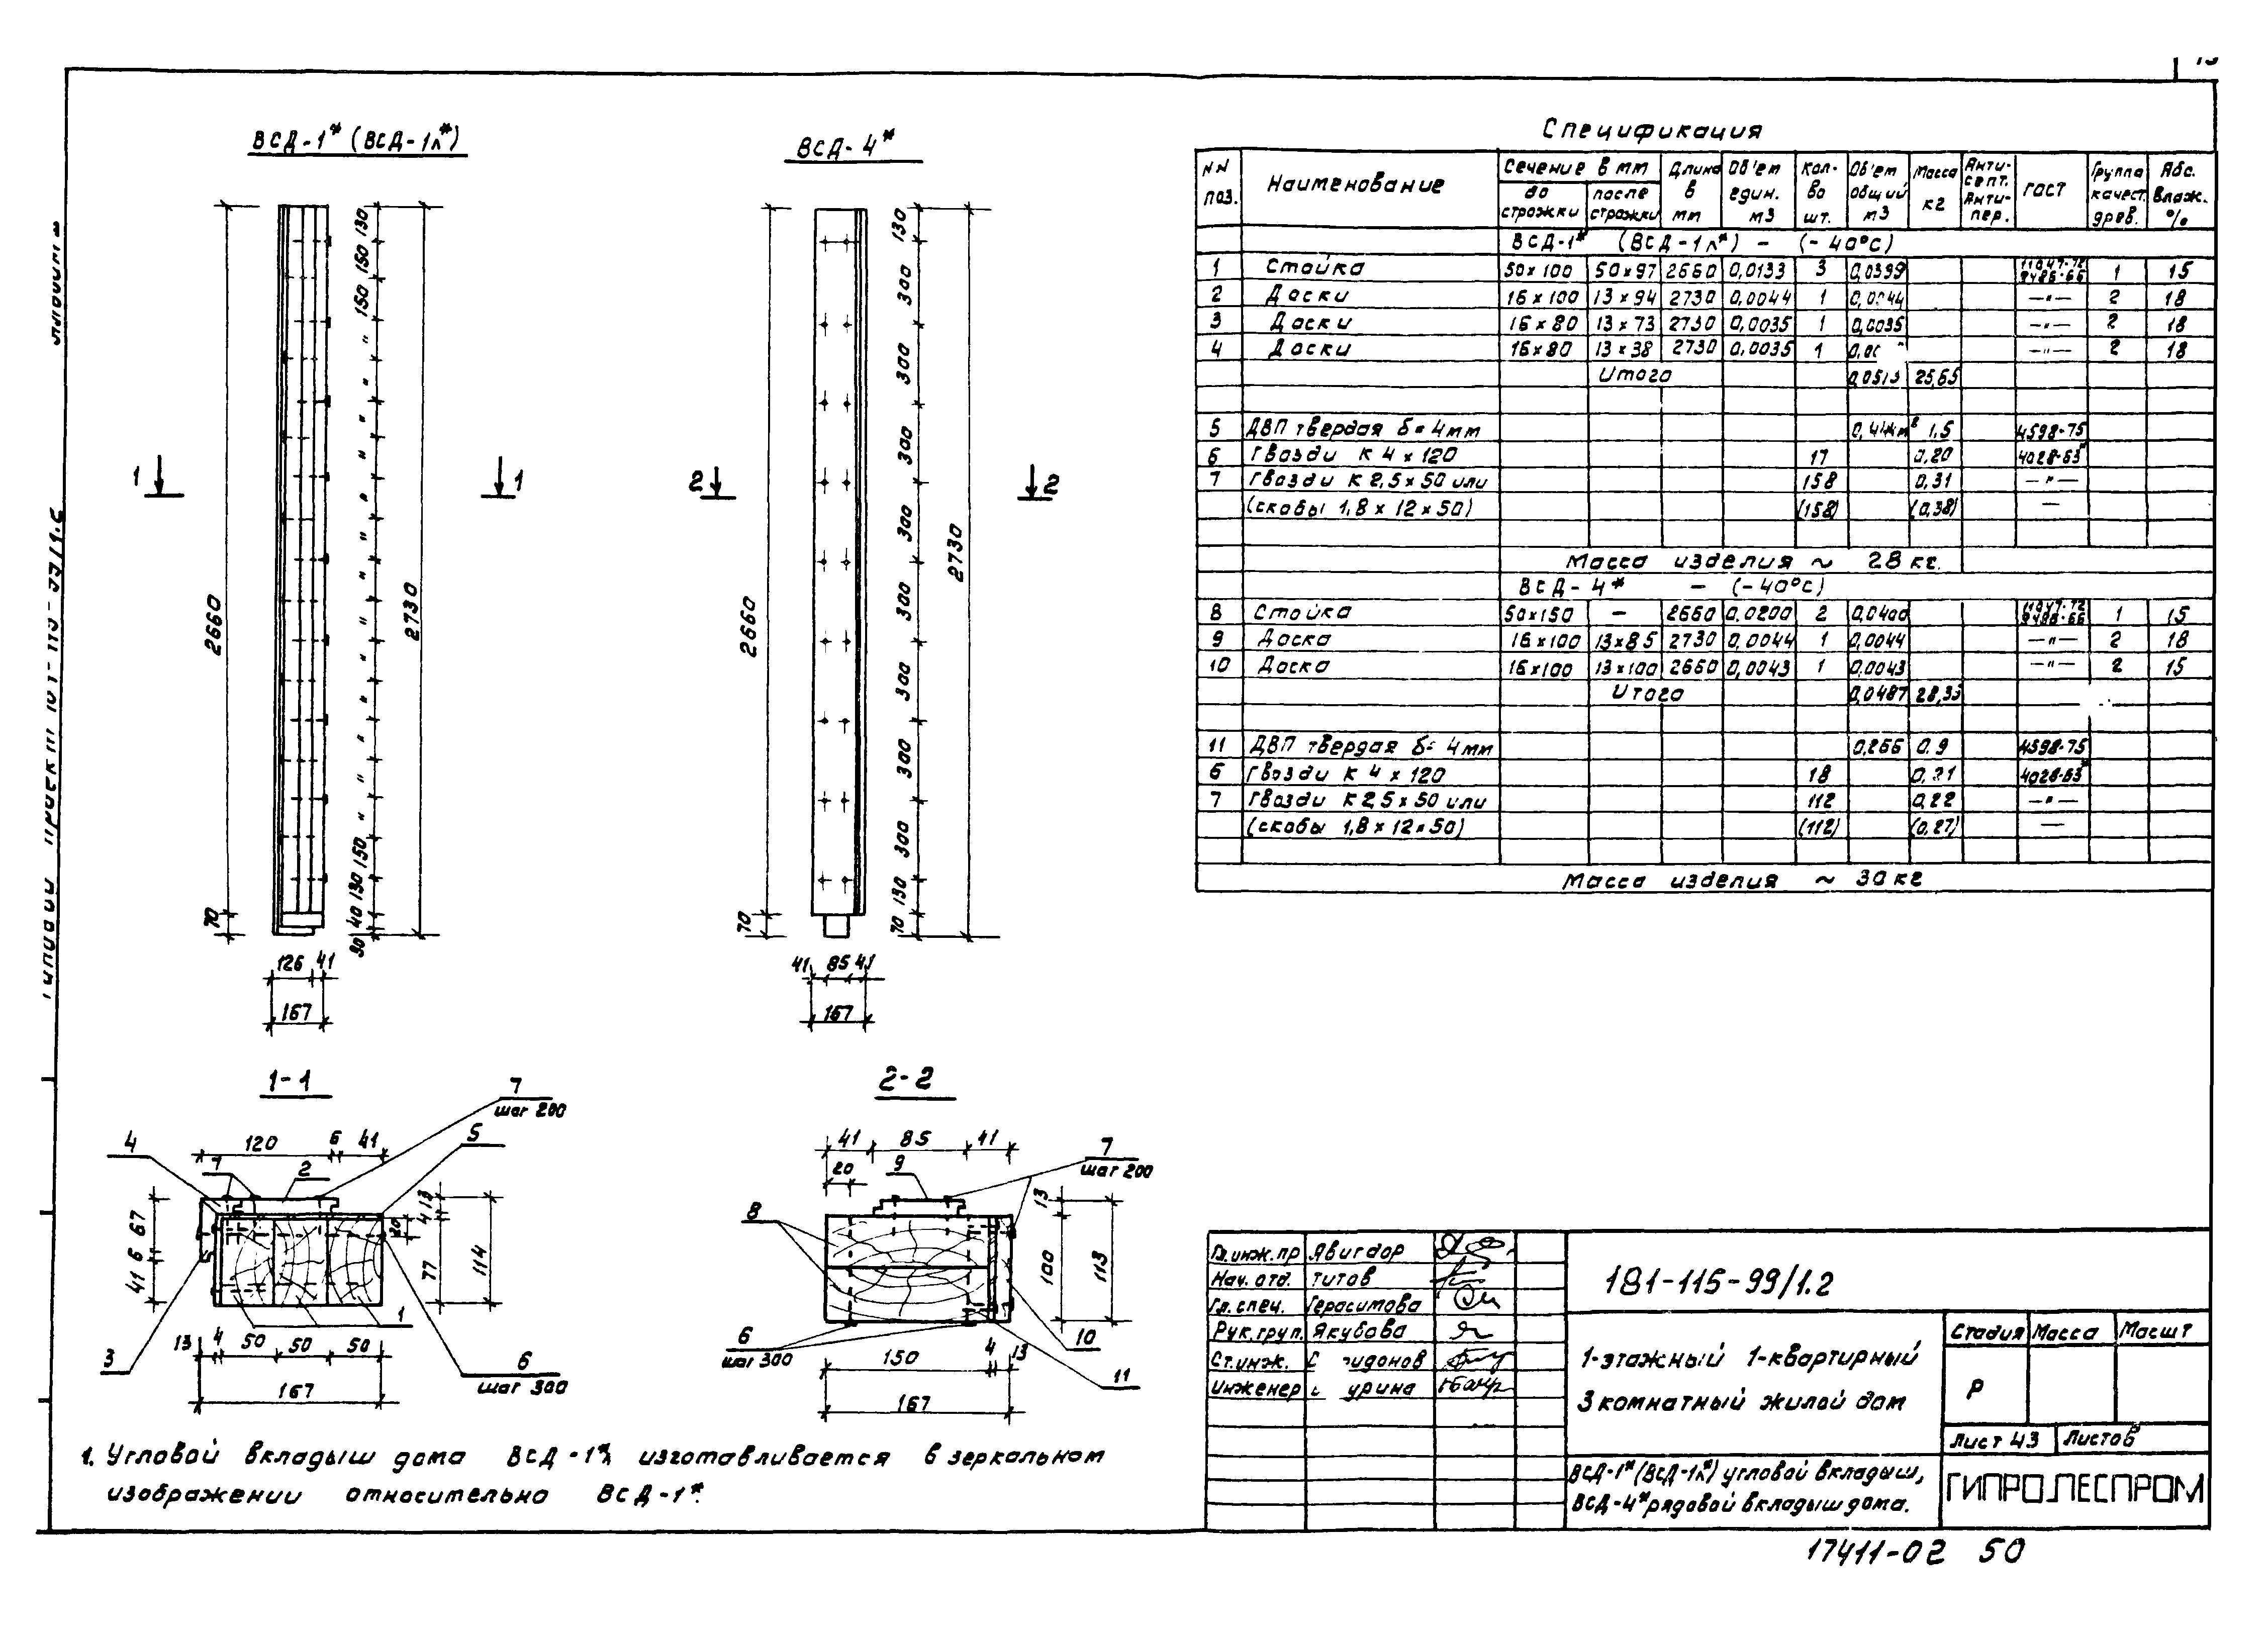 ВСД-1* (ВСД-1л*)
ВСД-4*
2660
70
130
150
150
150
130
40
30
2730
126 41
167
1 1
2660
70
130
300
300
300
300
300
300
300
300
130
70
2730
41 85 41
167
2 2
1-1
7
шаг 200
4
120 6 41
5
7 2
67
6
41
13
4
20
77
114
1
13 4 50 50 50
3
6
шаг 300
167
2-2
41 85 41
7
шаг 200
20 9
8
13
100
113
6
шаг 300
150 4 13
10
11
167
1. Угловой вкладыш дома ВСД-1*л изготавливается в зеркальном
изображении относительно ВСД-1*.
Спецификация
NN поз. Наименование Сечение в мм до строжки после строжки Длина в мм Об'ем един. м3 Кол-во шт. Об'ем общий м3 Масса кг Анти-септ. Анти-пер. ГОСТ Группа качест. древ. Абс. влаж. %
ВСД-1* (ВСД-1л*) - (-40°С)
1 Стойка 50х100 50х97 2660 0,0133 3 0,0399 1 15
2 Доски 16х100 13х94 2730 0,0044 1 0,0044 —"— 2 18
3 Доски 16х80 13х73 2730 0,0035 1 0,0035 —"— 2 18
4 Доски 16х80 13х38 2730 0,0035 1 —"— 2 18
Итого 0,0513 25,65
5 ДВП твердая δ=4мм 1,5 4598-75
6 Гвозди К 4х120 17 0,20 4028-63*
7 Гвозди К 2,5х50 или 158 0,31 —"—
(скобы 1,8х12х50) (158) (0,38) —
Масса изделия ~ 28 кг.
ВСД-4* - (-40°С)
8 Стойка 50х150 — 2660 0,0200 2 0,0400 1 15
9 Доска 16х100 13х85 2730 0,0044 1 0,0044 —"— 2 18
10 Доска 16х100 13х100 2660 0,0043 1 0,0043 —"— 2 15
Итого 0,0487
11 ДВП твердая δ=4мм 0,266 0,9 4598-75
6 Гвозди К 4х120 18 0,21 4028-63*
7 Гвозди К 2,5х50 или 112 0,22 —"—
(скобы 1,8х12х50) (112) (0,27) —
Масса изделия ~ 30 кг
Гл.инж.пр Явигдор
Нач. отд. Титов
Гл. спец. Герасимова
Рук.груп. Якубова
Ст.инж.
Инженер
181-115-99/1.2
1-этажный 1-квартирный
3 комнатный жилой дом
Стадия Масса Масшт
Р
Лист 43 Листов
ВСД-1*(ВСД-1л*) угловой вкладыш,
ВСД-4* рядовой вкладыш дома.
ГИПРОЛЕСПРОМ
17411-02 50